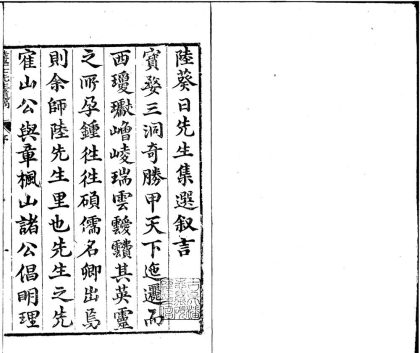 陸葵日先生集選叙言
寳婺三洞奇勝甲天下迤邐而
西瓊巘嶒崚瑞雲靉靆其英靈
之所孕鍾徃徃碩儒名卿出焉
則余師陸先生里也先生之先
寉山公與章楓山諸公倡明理